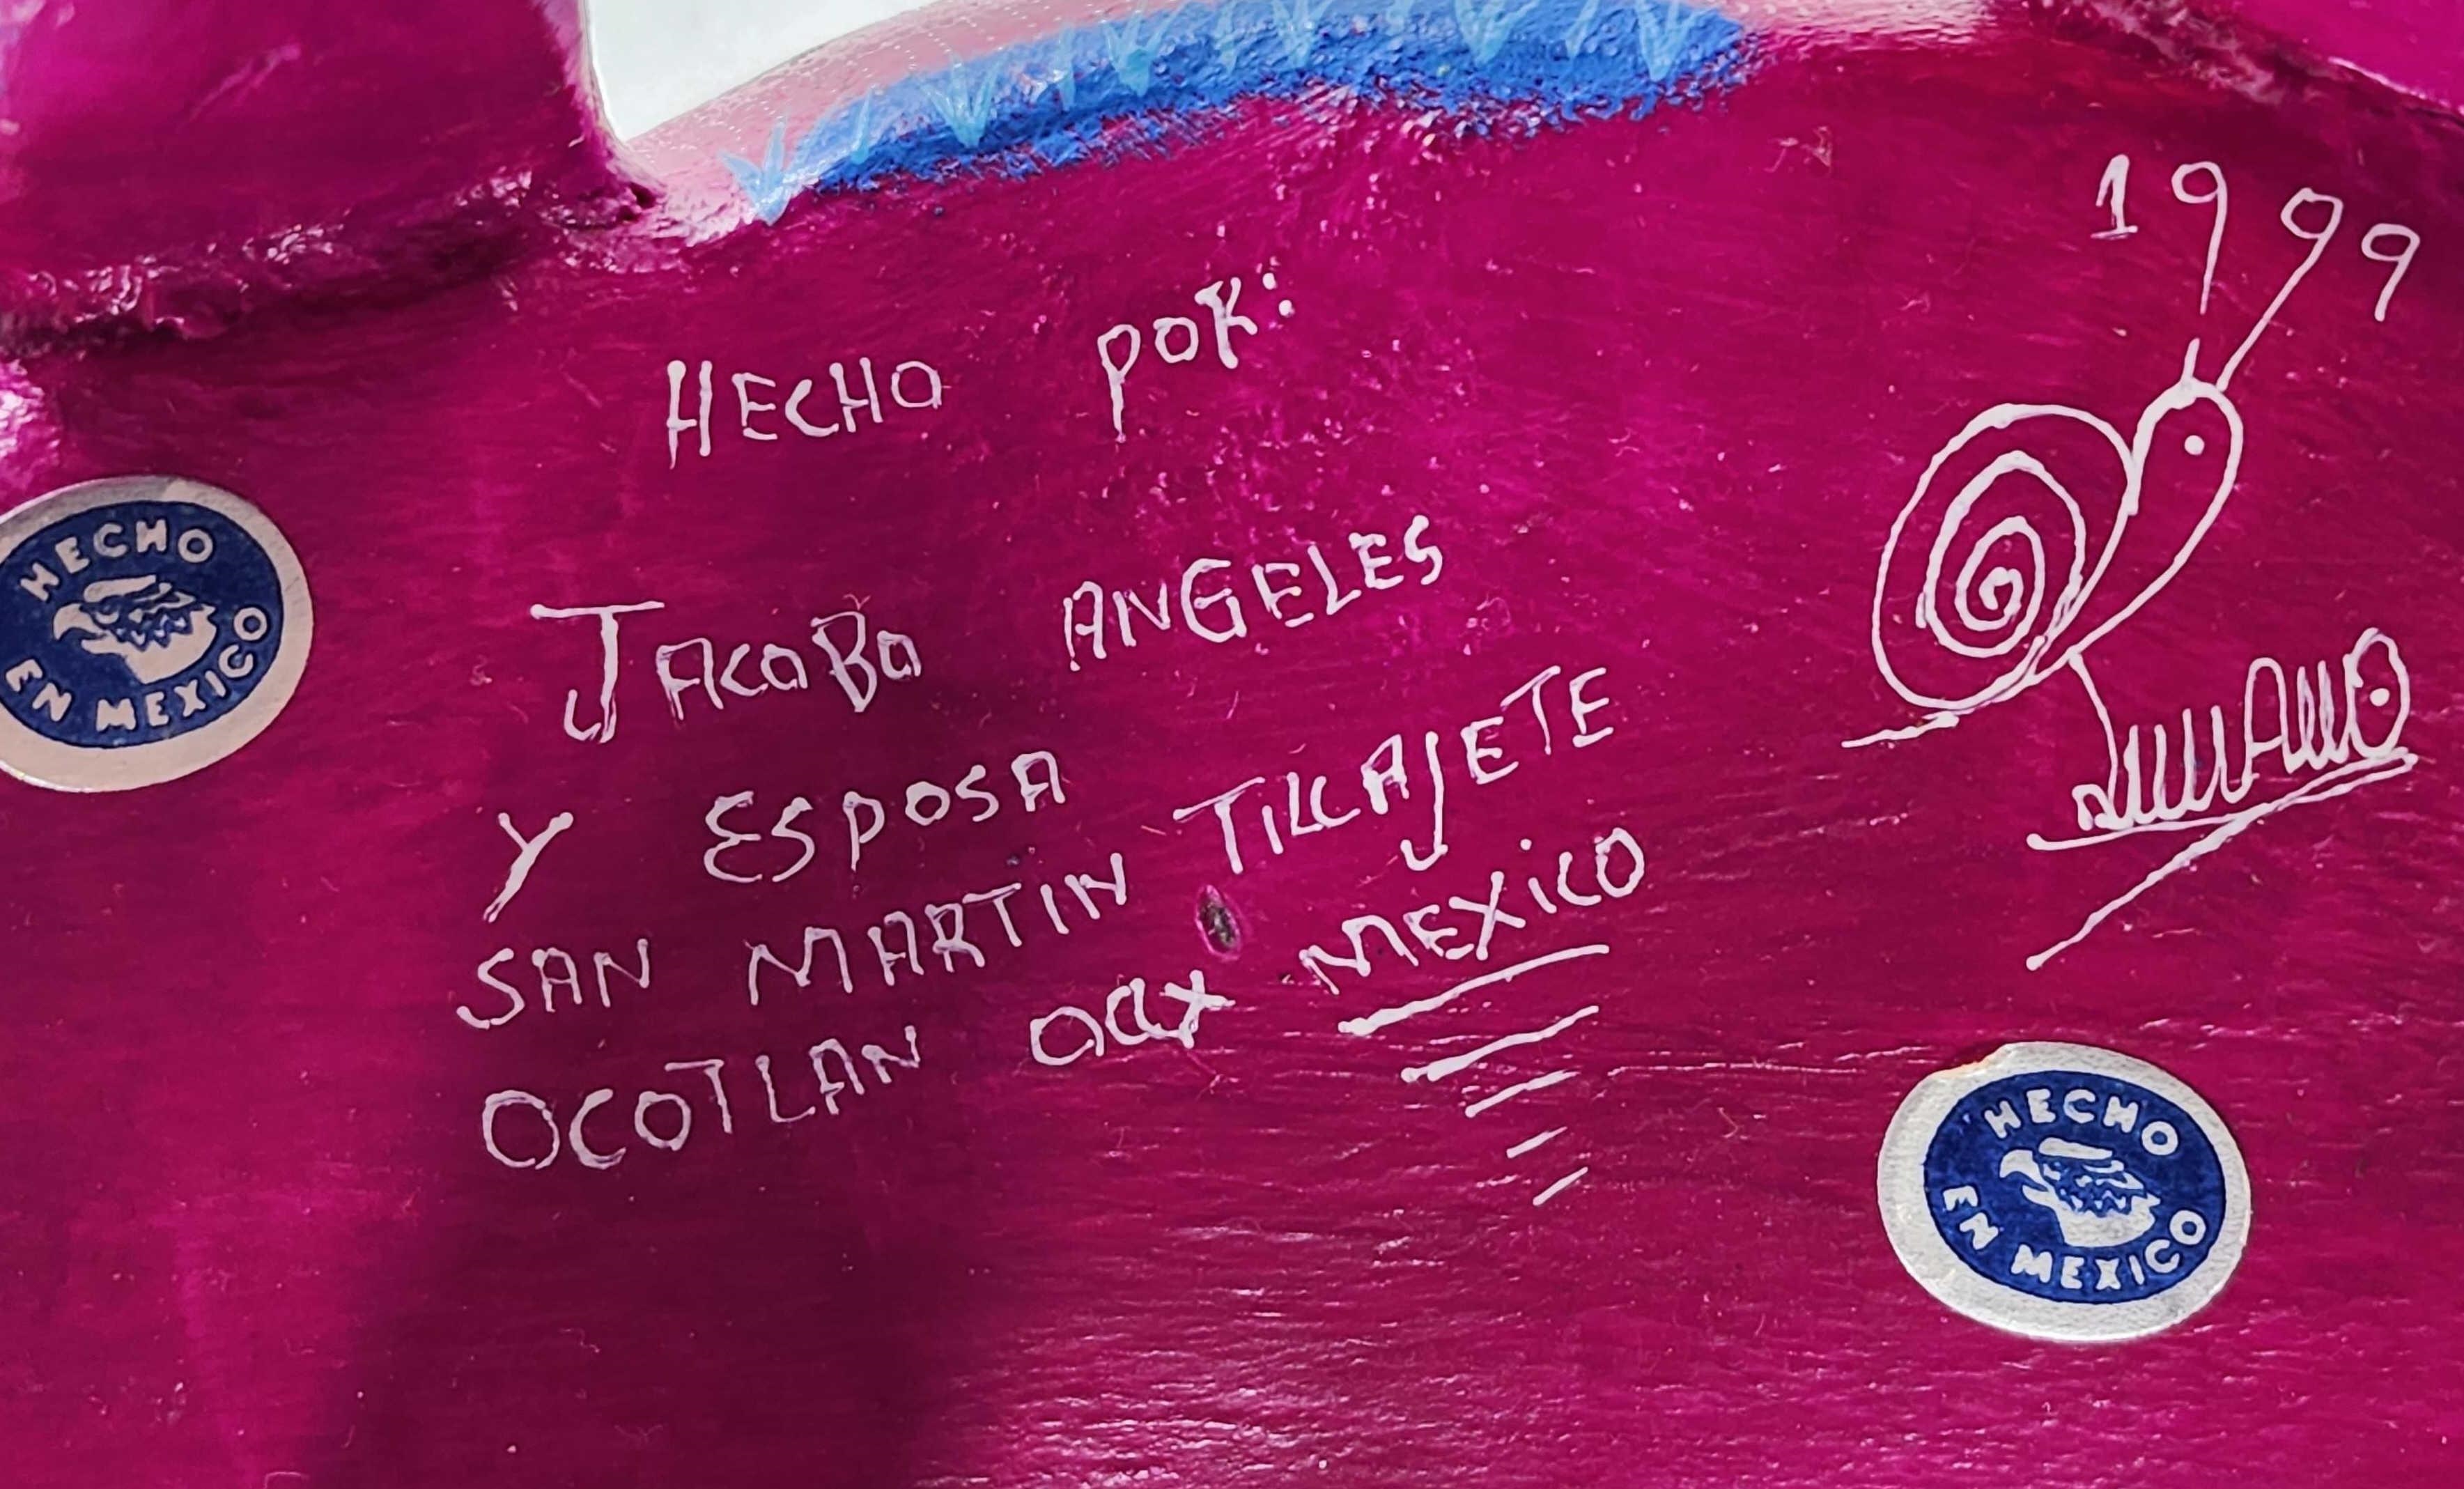 1999
HECHO POR:
JACOBO ANGELES
Y ESPOSA
SAN MARTIN TILCAJETE
OCOTLAN OAX MEXICO
HECHO
EN MEXICO
HECHO
EN MEXICO